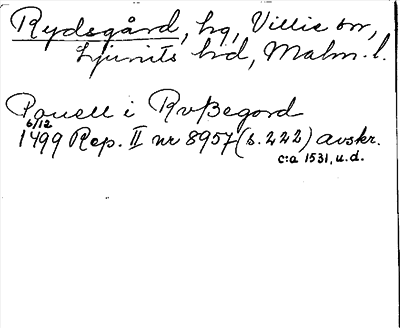 Rydsgård, hg, Villie sn,
Ljunits hd, Malm. l.
Pouell i Rvßegord
6/12
1499 Rep. II nr 8957 (s. 222) avskr.
c:a 1531, u.d.